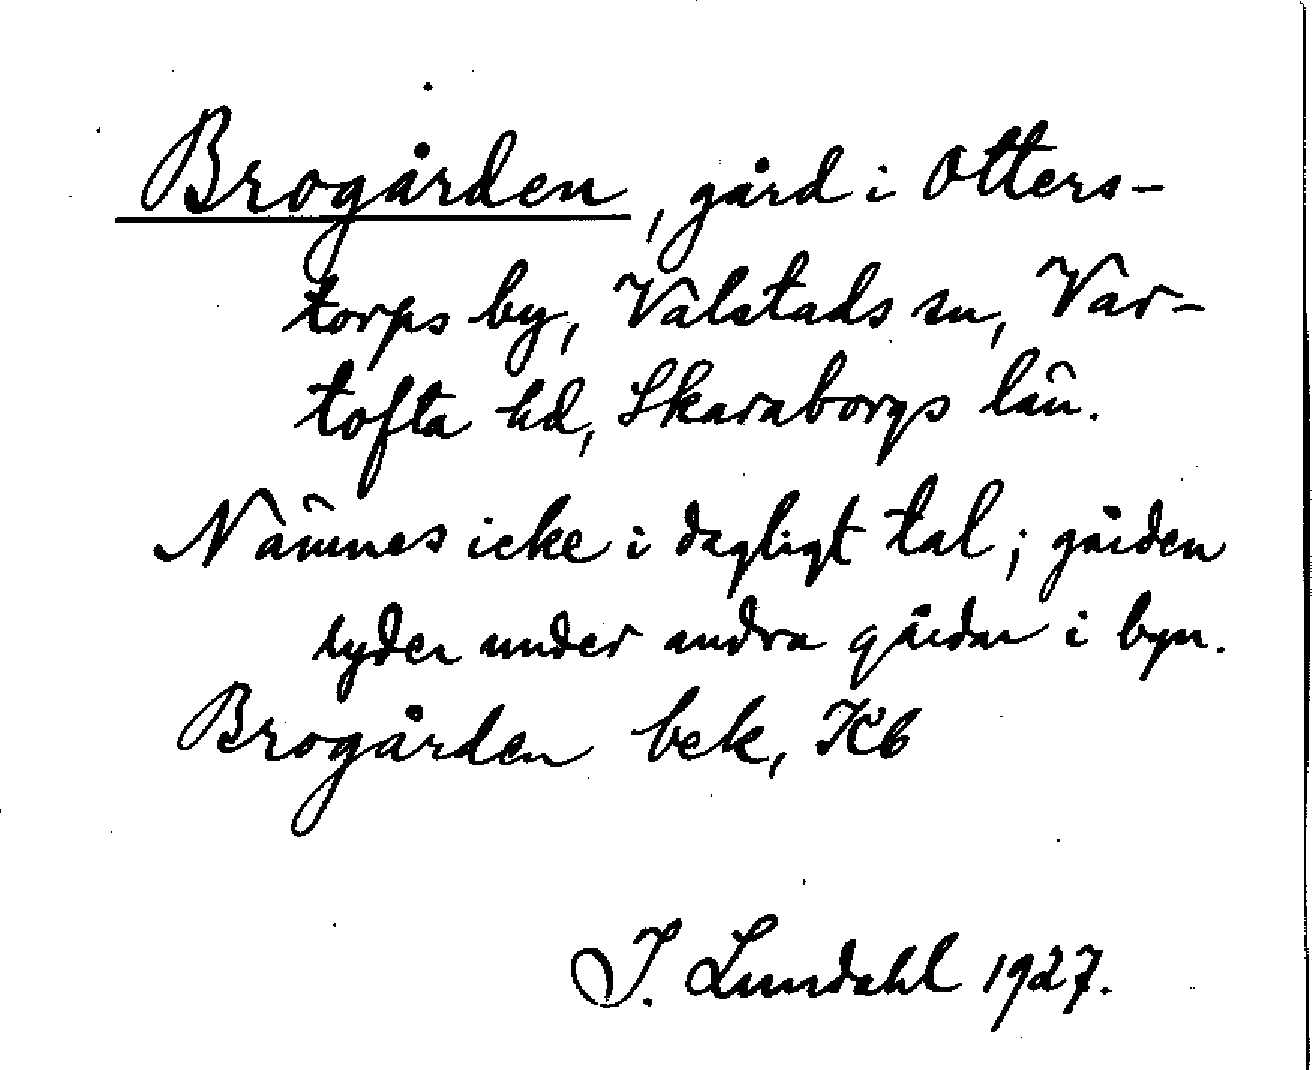 Brogården, gård i Otters-
torps by, Valstads sn, Var-
tofta hd, Skaraborgs län.
Nämnes icke i dagligt tal; gården
lyder under andra gårdar i byn.
Brogården bek, Kb
I. Lundahl 1927.